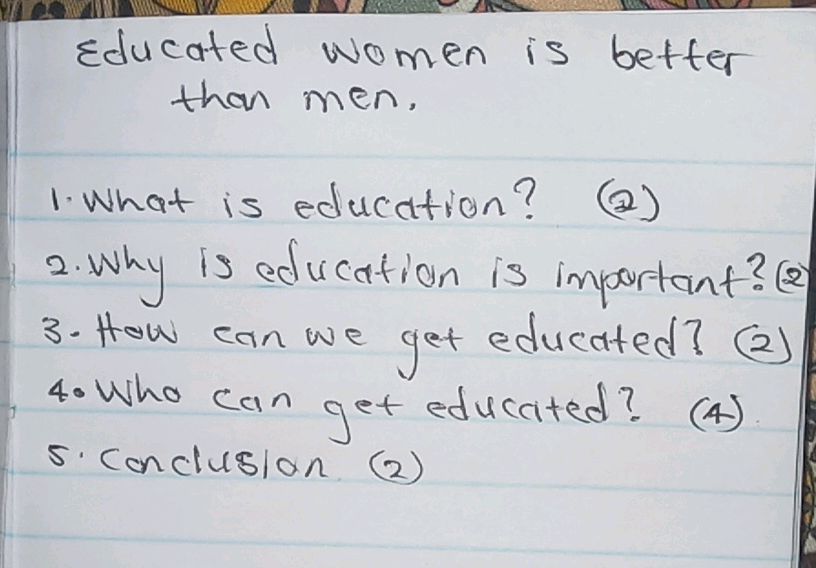 Educated women is better
than men.
1. What is education? (2)
2. Why is education is important? (2)
3. How can we get educated? (2)
4. Who can get educated? (4).
5. Conclusion (2)